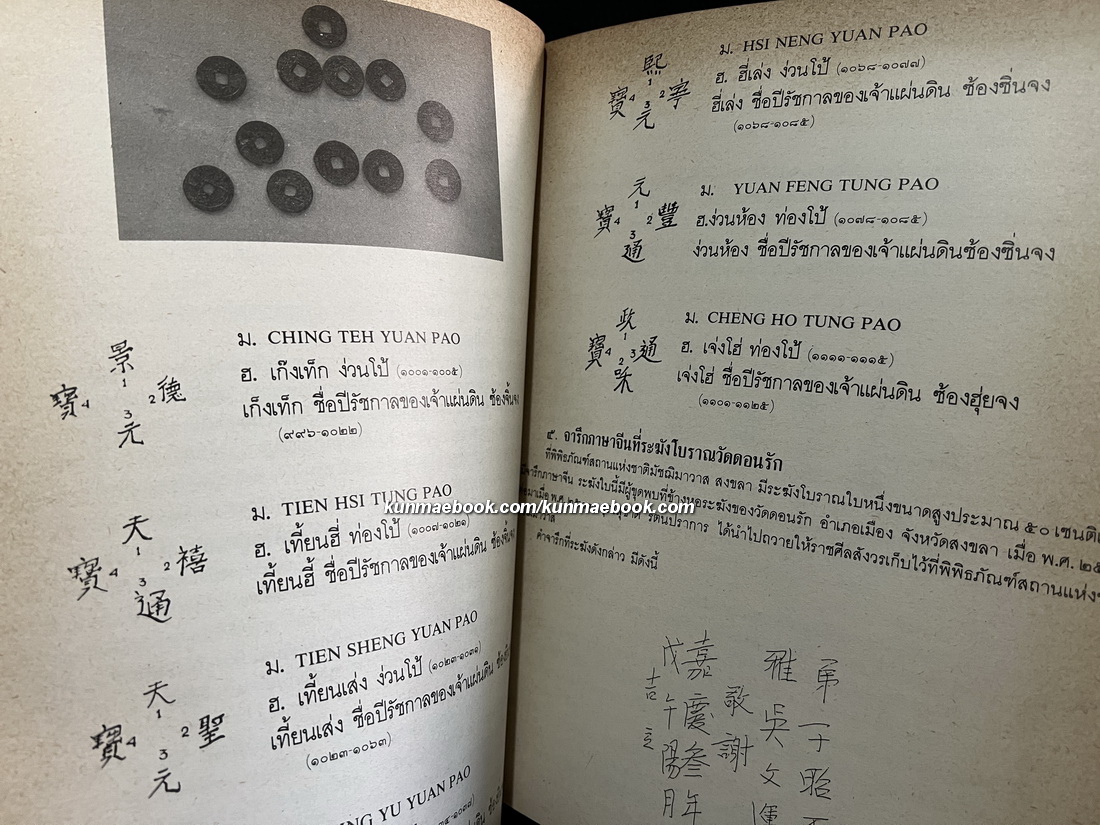 景
1
寶 4 2 德
3
元
ม. CHING TEH YUAN PAO
ฮ. เก๊งเท็ก ง่วนโป้ (๑๐๐๑-๑๐๐๕)
เก็งเท็ก ชื่อปีรัชกาลของเจ้าแผ่นดิน ซ้องจิ้นจง
(๙๙๖-๑๐๒๒)
天
1
寶 4 2 禧
3
通
ม. TIEN HSI TUNG PAO
ฮ. เที้ยนฮี่ ท่องโป้ (๑๐๐๗-๑๐๒๑)
เที้ยนฮี้ ชื่อปีรัชกาลของเจ้าแผ่นดิน ซ้องจิ้นจง
天
1
寶 4 2 聖
3
元
ม. TIEN SHENG YUAN PAO
ฮ. เที้ยนเส่ง ง่วนโป้ (๑๐๒๓-๑๐๓๑)
เที้ยนเส่ง ชื่อปีรัชกาลของเจ้าแผ่นดิน
(๑๐๒๓-๑๐๖๓)
YU YUAN PAO
熙
1
寶 4 2 寧
3
元
ม. HSI NENG YUAN PAO
ฮ. ฮี่เล่ง ง่วนโป้ (๑๐๖๘-๑๐๗๗)
ฮี่เล่ง ชื่อปีรัชกาลของเจ้าแผ่นดิน ซ้องซิ่นจง
(๑๐๖๘-๑๐๘๕)
元
1
寶 4 2 豐
3
通
ม. YUAN FENG TUNG PAO
ฮ.ง่วนห้อง ท่องโป้ (๑๐๗๘-๑๐๘๕)
ง่วนห้อง ชื่อปีรัชกาลของเจ้าแผ่นดินซ้องซิ่นจง
政
1
寶 4 3 通
2
和
ม. CHENG HO TUNG PAO
ฮ. เจ่งโฮ่ ท่องโป้ (๑๑๑๑-๑๑๑๕)
เจ่งโฮ่ ชื่อปีรัชกาลของเจ้าแผ่นดิน ซ้องฮุ่ยจง
(๑๑๐๑-๑๑๒๕)
๕. จารึกภาษาจีนที่ระฆังโบราณวัดดอนรัก
ที่พิพิธภัณฑ์สถานแห่งชาติมัชฌิมาวาส สงขลา มีระฆังโบราณใบหนึ่งขนาดสูงประมาณ ๕๐ เซนติ
จารึกภาษาจีน ระฆังใบนี้มีผู้ขุดพบที่ข้างหอระฆังของวัดดอนรัก อำเภอเมือง จังหวัดสงขลา เมื่อ พ.ศ. ๒๕
รัตนปราการ ได้นำไปถวายให้ราชศีลสังวรเก็บไว้ที่พิพิธภัณฑ์สถานแห่ง
คำจารึกที่ระฆังดังกล่าว มีดังนี้
kunmaebook.com/kunmaebook.com
弟一于昭
雅吳文
敬謝
嘉慶叁年
戊午陽月
吉立